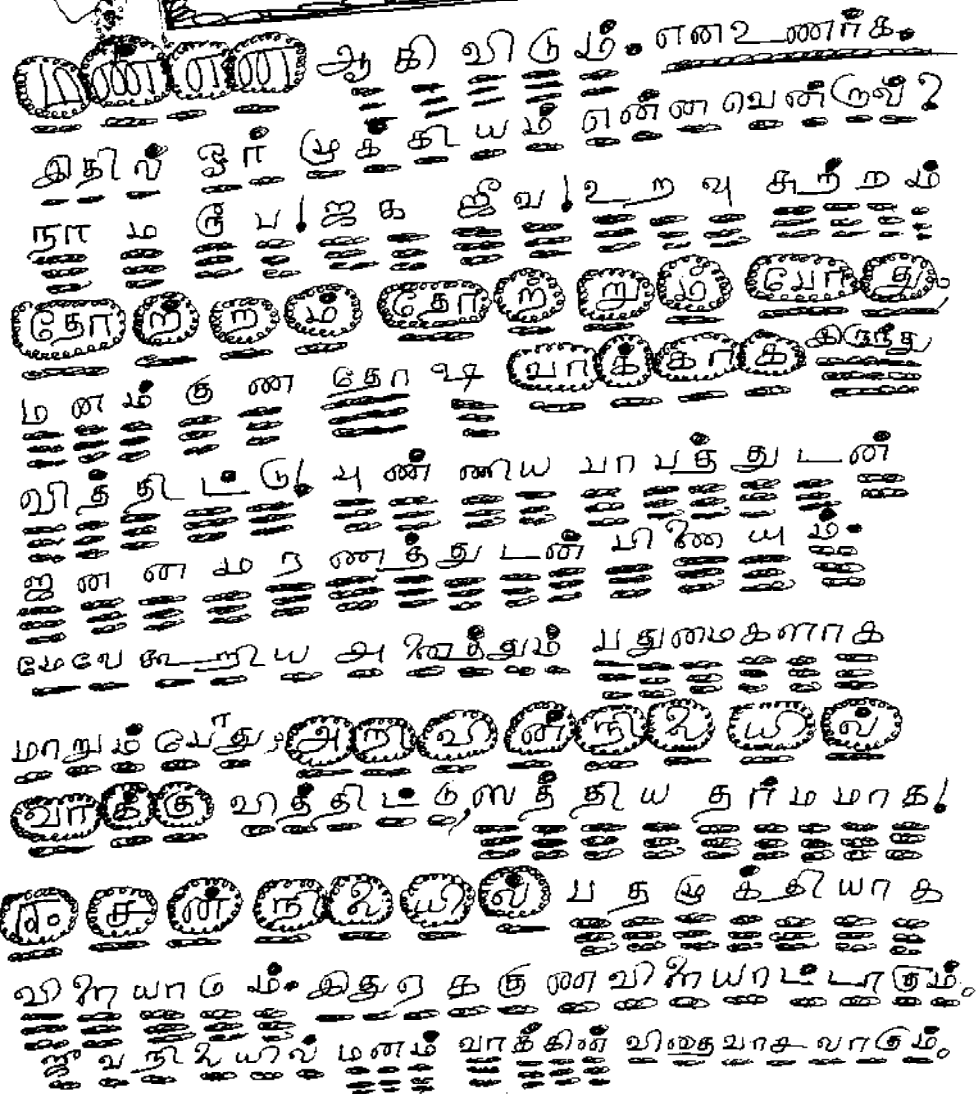 மண்ண ஆகி விடும். என உணர்க.
இதில் ஓர் முக்கியம் என்ன வென்றால்?
நாம ரூப! ஜக ஜீவ! உறவு சுற்றம்
தோற்றம் தோற்றும் போது,
மனம் குண தோஷ வாக்காக இருந்து
வித்திட்டு! புண்ணிய பாபத்துடன்
ஜனன மரணத்துடன் பிணையும்.
மேலே கூறிய அனைத்தும் பதுமைகளாக
மாறும் போது, அறிவின் நிலையில்
வாக்கு வித்திட்டு, ஸத்திய தர்மமாக!
ஈசன் நிலையில் பத முக்தியாக
விளையாடும். இது ஏக குண விளையாட்டாகும்.
ஜீவ நிலையில் மனம் வாக்கின் விதை வாசலாகும்.